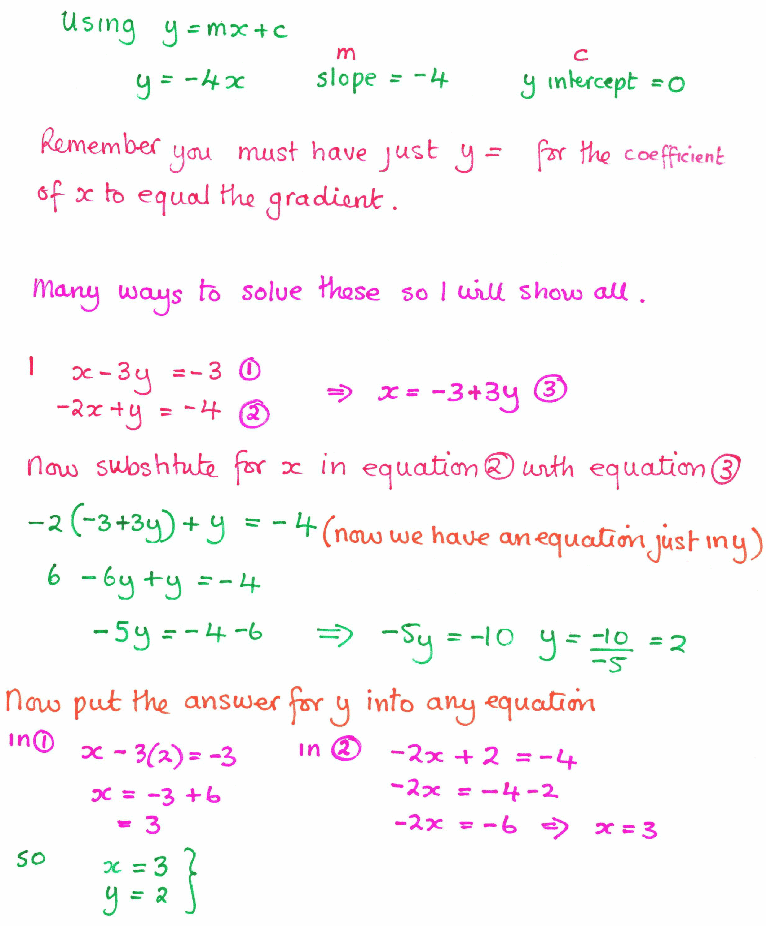 Using y = mx + c
m c
y = -4x slope = -4 y intercept = 0
Remember you must have just y = for the coefficient
of x to equal the gradient.
Many ways to solve these so I will show all.
1 x - 3y = -3 ①
⇒ x = -3+3y ③
-2x+y = -4 ②
Now substitute for x in equation ② with equation ③
-2(-3+3y) + y = -4 (now we have an equation just in y)
6 - 6y + y = -4
-5y = -4 - 6 ⇒ -5y = -10 y = -10/-5 = 2
Now put the answer for y into any equation
in ① x - 3(2) = -3 in ② -2x + 2 = -4
x = -3 + 6 -2x = -4 - 2
= 3 -2x = -6 ⇒ x = 3
so x = 3 }
y = 2